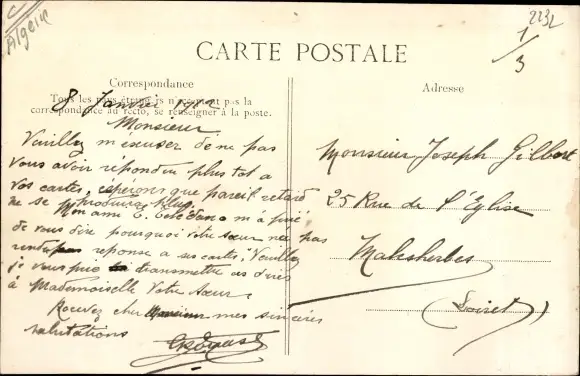 Algérie
2232
1/3
CARTE POSTALE
Correspondance
Tous les pays étrangers n'acceptent pas la
correspondance au recto, se renseigner à la poste.
8 Janvier
Monsieur
Veuillez m'excuser de ne pas
vous avoir répondu plus tot a
vos cartes, espérons que pareil retard
ne se produira plus.
Mon ami E. m'a prié
de vous dire pourquoi votre sœur n'a pas
reponse a ses cartes; Veuillez
je vous prie transmettre
à Mademoiselle Votre Sœur.
Recevez cher Monsieur mes sincères
salutations
Adresse
Monsieur Joseph Gilbert
25 Rue de l'Eglise
Malesherbes
(Loiret)